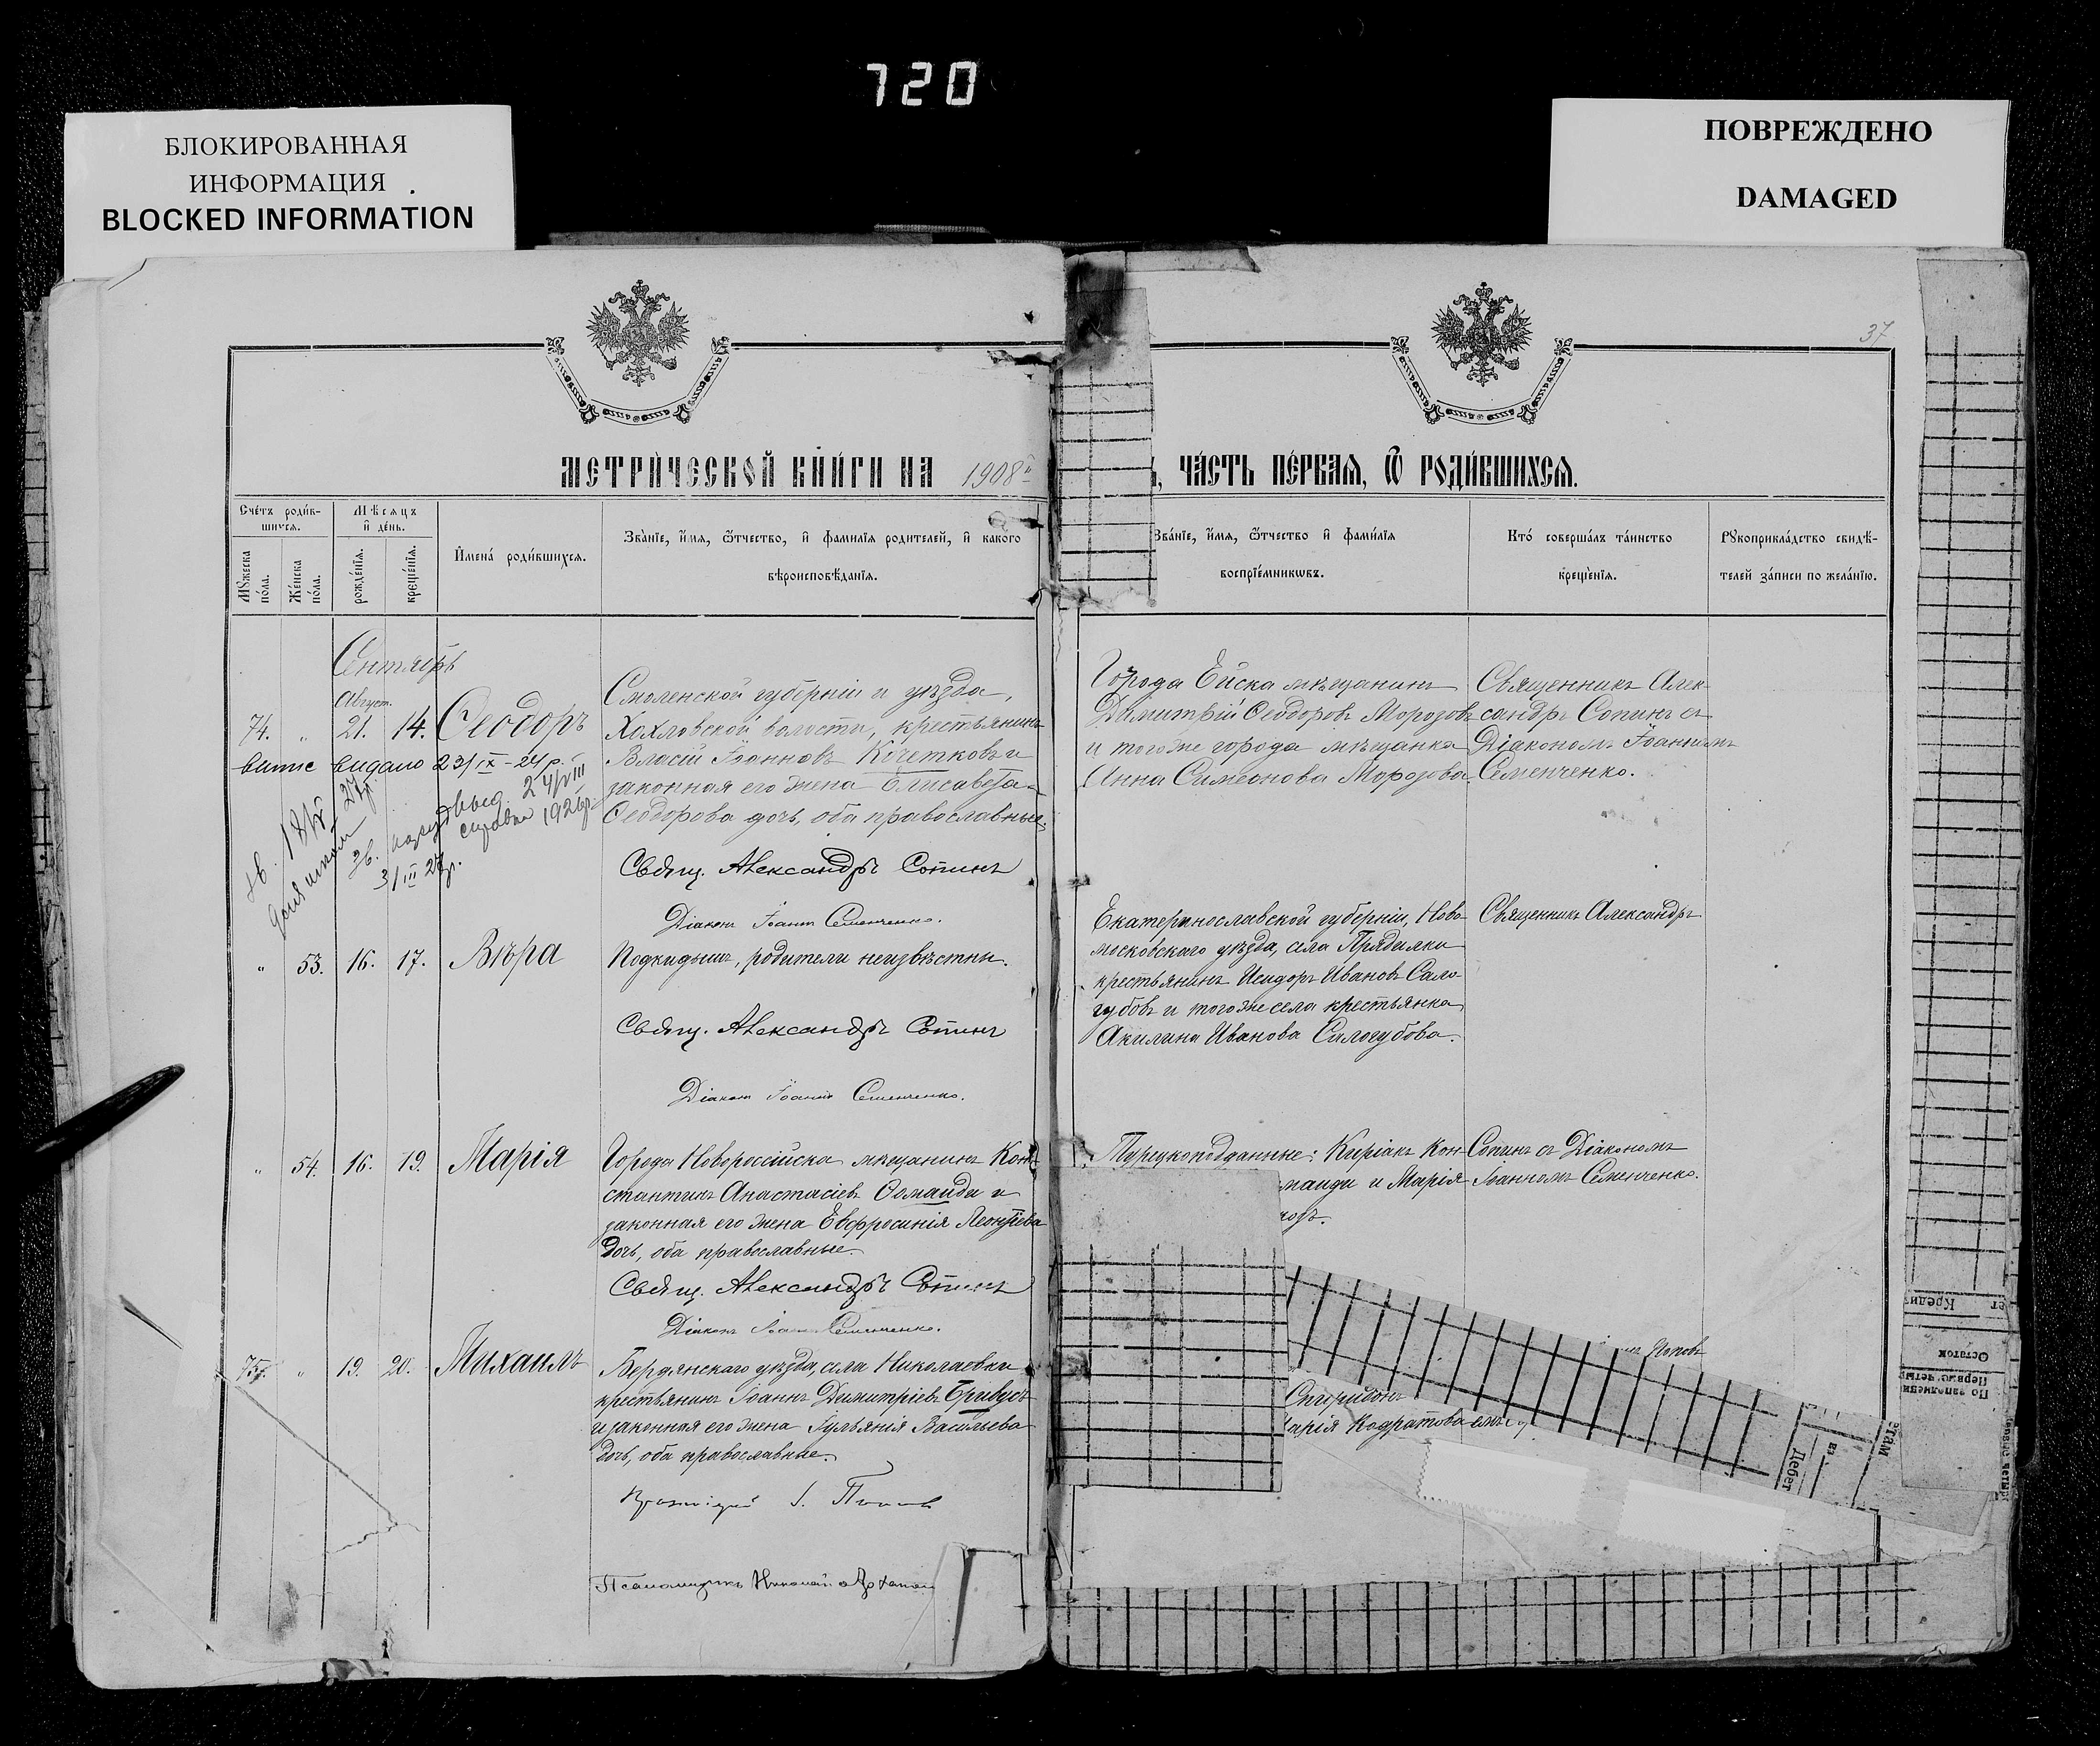 720
БЛОКИРОВАННАЯ
ИНФОРМАЦИЯ
BLOCKED INFORMATION
ПОВРЕЖДЕНО
DAMAGED
37
МЕТРИ́ЧЕСКОЙ КНИ́ГИ НА 1908й
ЧА́СТЬ ПЕ́РВАЯ, Ѿ РОДИ́ВШИХСЯ.
Сче́тъ роди́в-
шихся.
Мѣсяцъ
и де́нь.
Мꙋжеска
по́ла.
Же́нска
по́ла.
рожде́нїя.
креще́нїя.
Имена́ роди́вшихся.
Зва́нїе, и́мя, ѿтчество, и фами́лїя родителей, и како́го
вѣроисповѣ́данїя.
Зва́нїе, и́мя, ѿтчество и фами́лїя
воспрїе́мникѡвъ.
Кто́ соверша́лъ та́инство
креще́нїя.
Рꙋкоприкла́дство свидѣ́-
телей за́писи по жела́нїю.
Сентябрь
Август.
74. „ 21. 14. Ѳеодоръ
Смоленской губерніи и уѣзда,
Хохловской волости, крестьянинъ
Власій Іоанновъ Кочетковъ и
законная его жена Елисавета
Ѳеодорова дочь, оба православные.
Свящ. Александръ Сопинъ
Діаконъ Іоаннъ Семенченко.
Города Ейска мѣщанинъ
Димитрій Ѳеодоровъ Морозовъ
и тогоже города мѣщанка
Анна Симеонова Морозова.
Священникъ Алек-
сандръ Сопинъ съ
Діакономъ Іоанномъ
Семенченко.
выдано 23/IX-24 р.
24/VIII
1926р.
3/III 27р.
„ 53. 16. 17. Вѣра
Подкидышъ, родители неизвѣстны.
Свящ. Александръ Сопинъ
Діаконъ Іоаннъ Семенченко.
Екатеринославской губерніи, Ново-
московскаго уѣзда, села Прядилки
крестьянинъ Исидоръ Ивановъ Сало-
губовъ и тогоже села крестьянка
Акилина Иванова Салогубова.
Священникъ Александръ
„ 54. 16. 19. Марія
Города Новороссійска мѣщанинъ Кон-
стантинъ Анастасіевъ Османди и
законная его жена Евфросинія Леонтіева
дочь, оба православные.
Свящ. Александръ Сопинъ
Діаконъ Іоаннъ Семенченко.
Турецкоподданные: Киріакъ Кон-
манди и Марія
Сопинъ съ Діакономъ
Іоанномъ Семенченко.
75. „ 19. 20. Михаилъ
Бердянскаго уѣзда, села Николаевки
крестьянинъ Іоаннъ Димитріевъ Бривусъ
и законная его жена Іульянія Васильева
дочь, оба православные.
І. Попов
Псаломщикъ Николай
Попов
Спиридонъ
арія Кодратова
Креди
Остаток
Дебет